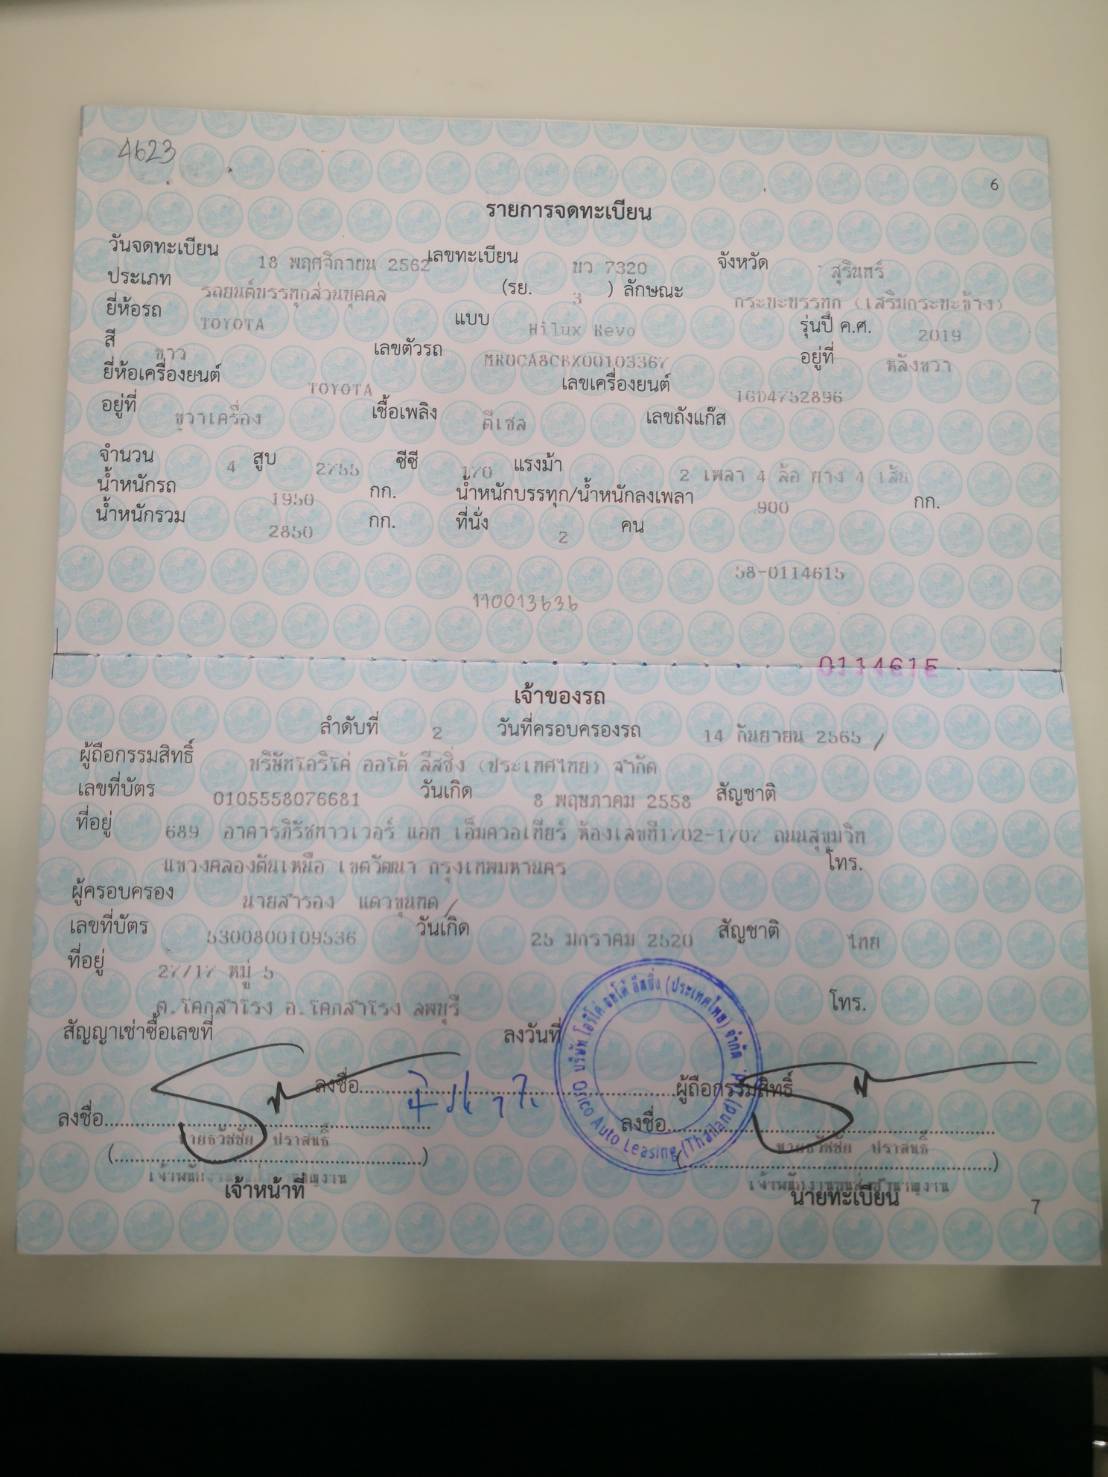 4623
6
รายการจดทะเบียน
วันจดทะเบียน 18 พฤศจิกายน 2562 เลขทะเบียน บว 7320 จังหวัด สุรินทร์
ประเภท รถยนต์บรรทุกส่วนบุคคล (รย. 3 ) ลักษณะ กระบะบรรทุก (เสริมกระบะข้าง)
ยี่ห้อรถ TOYOTA แบบ Hilux Revo รุ่นปี ค.ศ. 2019
สี ขาว เลขตัวรถ อยู่ที่ หลังขวา
ยี่ห้อเครื่องยนต์ TOYOTA เลขเครื่องยนต์ 1GD4752896
อยู่ที่ ขวาเครื่อง เชื้อเพลิง ดีเซล เลขถังแก๊ส
จำนวน 4 สูบ 2755 ซีซี 170 แรงม้า 2 เพลา 4 ล้อ ยาง 4 เส้น
น้ำหนักรถ 1950 กก. น้ำหนักบรรทุก/น้ำหนักลงเพลา 900 กก.
น้ำหนักรวม 2850 กก. ที่นั่ง 2 คน
58-0114615
110013636
0114615
เจ้าของรถ
ลำดับที่ 2 วันที่ครอบครองรถ 14 กันยายน 2565 /
ผู้ถือกรรมสิทธิ์ บริษัทโอริโค่ ออโต้ ลีสซิ่ง (ประเทศไทย) จำกัด
เลขที่บัตร 0105558076681 วันเกิด 8 พฤษภาคม 2558 สัญชาติ
ที่อยู่ 689 อาคารภิรัชทาวเวอร์ แอท เอ็มควอเทียร์ ห้องเลขที่1702-1707 ถนนสุขุมวิท
แขวงคลองตันเหนือ เขตวัฒนา กรุงเทพมหานคร โทร.
ผู้ครอบครอง นายสำรอง แดวขุนทด /
เลขที่บัตร 5300800109536 วันเกิด 25 มกราคม 2520 สัญชาติ ไทย
ที่อยู่ 27/17 หมู่ 5
ต.โคกสำโรง อ.โคกสำโรง ลพบุรี โทร.
สัญญาเช่าซื้อเลขที่ ลงวันที่
บริษัท โอริโค่ ออโต้ ลีสซิ่ง (ประเทศไทย) จำกัด
Orico Auto Leasing (Thailand) Ltd.
ลงชื่อ ผู้ถือกรรมสิทธิ์
ลงชื่อ ลงชื่อ
(นายธวัชชัย ปราสนธิ์) (นายธวัชชัย ปราสนธิ์)
เจ้าหน้าที่ นายทะเบียน
7